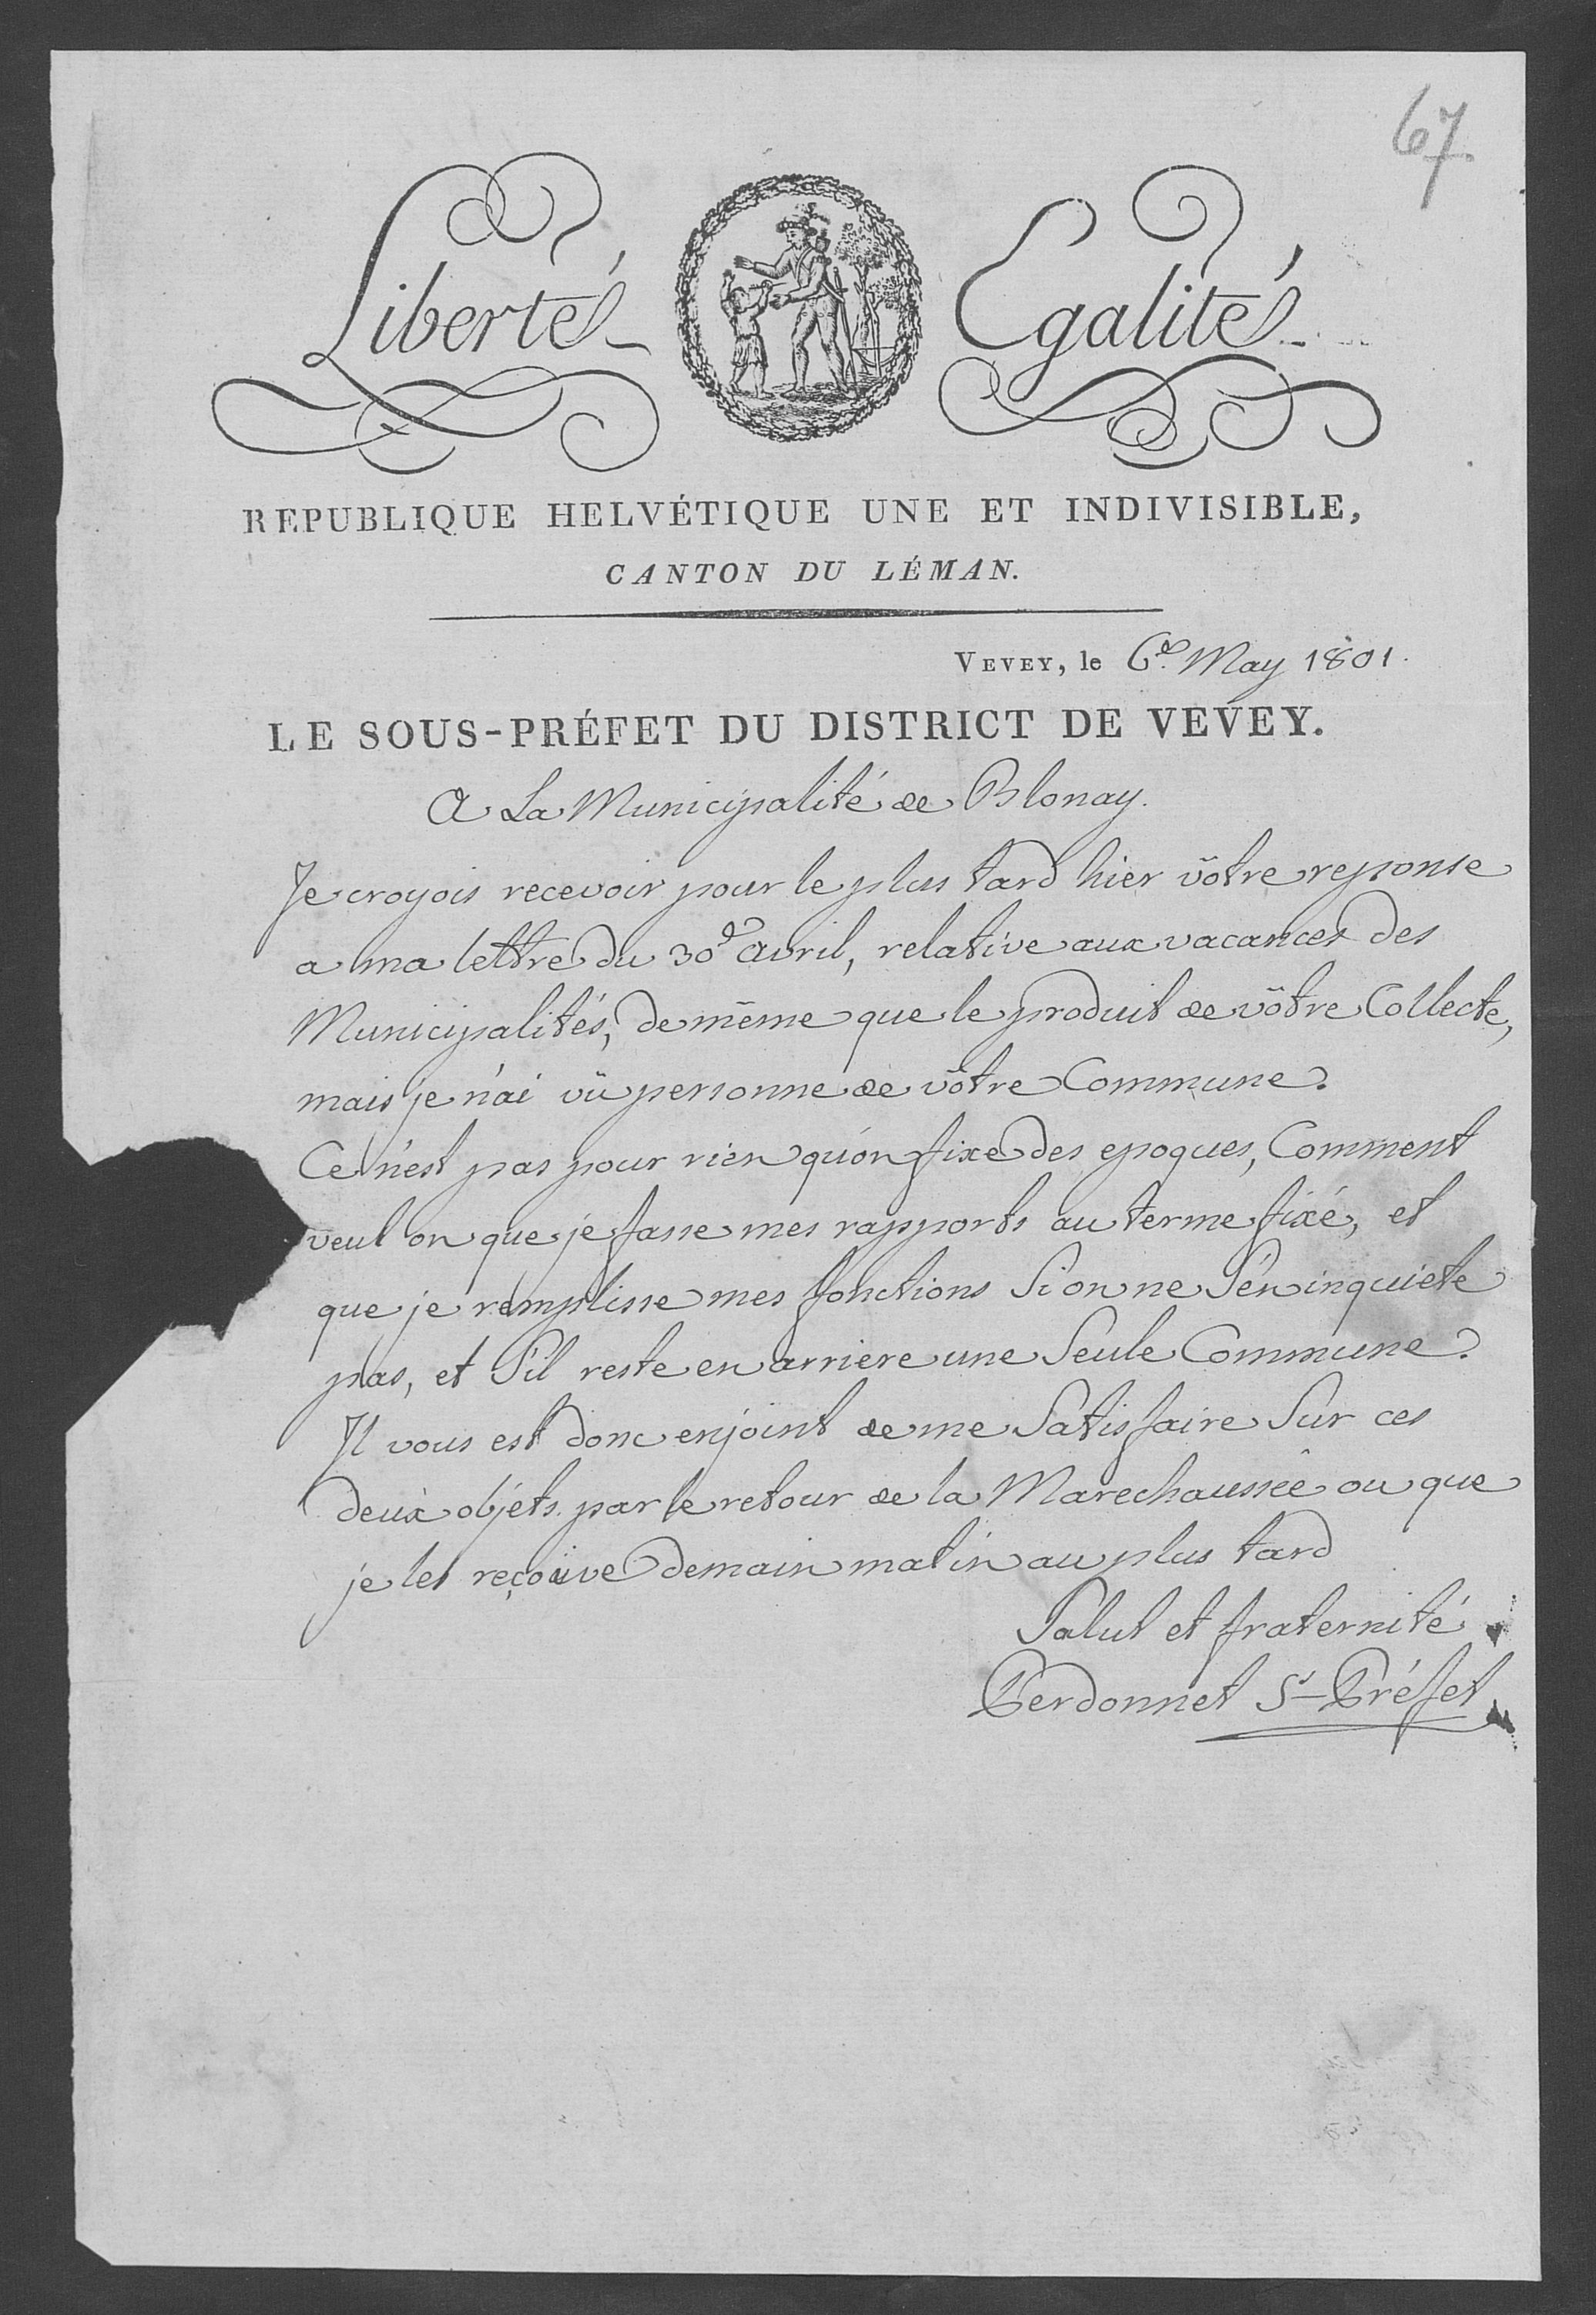 67
Liberté Egalité
REPUBLIQUE HELVÉTIQUE UNE ET INDIVISIBLE,
CANTON DU LÉMAN.
VEVEY, le 6e. May 1801.
LE SOUS-PRÉFET DU DISTRICT DE VEVEY.
A La Municipalité de Blonay.
Je croyois recevoir pour le plus tard hier vôtre reponse
a ma lettre du 30e avril, relative aux vacances des
Municipalités, de même que le produit de vôtre Collecte,
mais je n'ai vü personne de vôtre Commune.
Ce n'est pas pour rien qu'on fixe des epoques, Comment
veut on que je fasse mes rapports au terme fixé, et
que je remplisse mes fonctions Si on ne S'en inquiete
pas, et S'il reste en arriere une Seule Commune?
Il vous est donc enjoint de me Satisfaire Sur ces
deux objets par le retour de la Marechaussée ou que
je les reçoive demain matin au plus tard
Salut et fraternité
Perdonnet S-Préfet